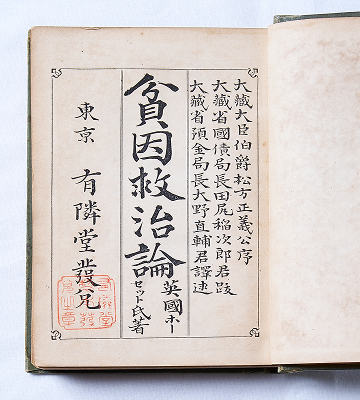 大藏大臣伯爵松方正義公序
大藏省國債局長田尻稲次郎君跋
大藏省預金局長大野直輔君譯述
貧困救治論
英國ホー
セット氏著
東京 有隣堂發兌